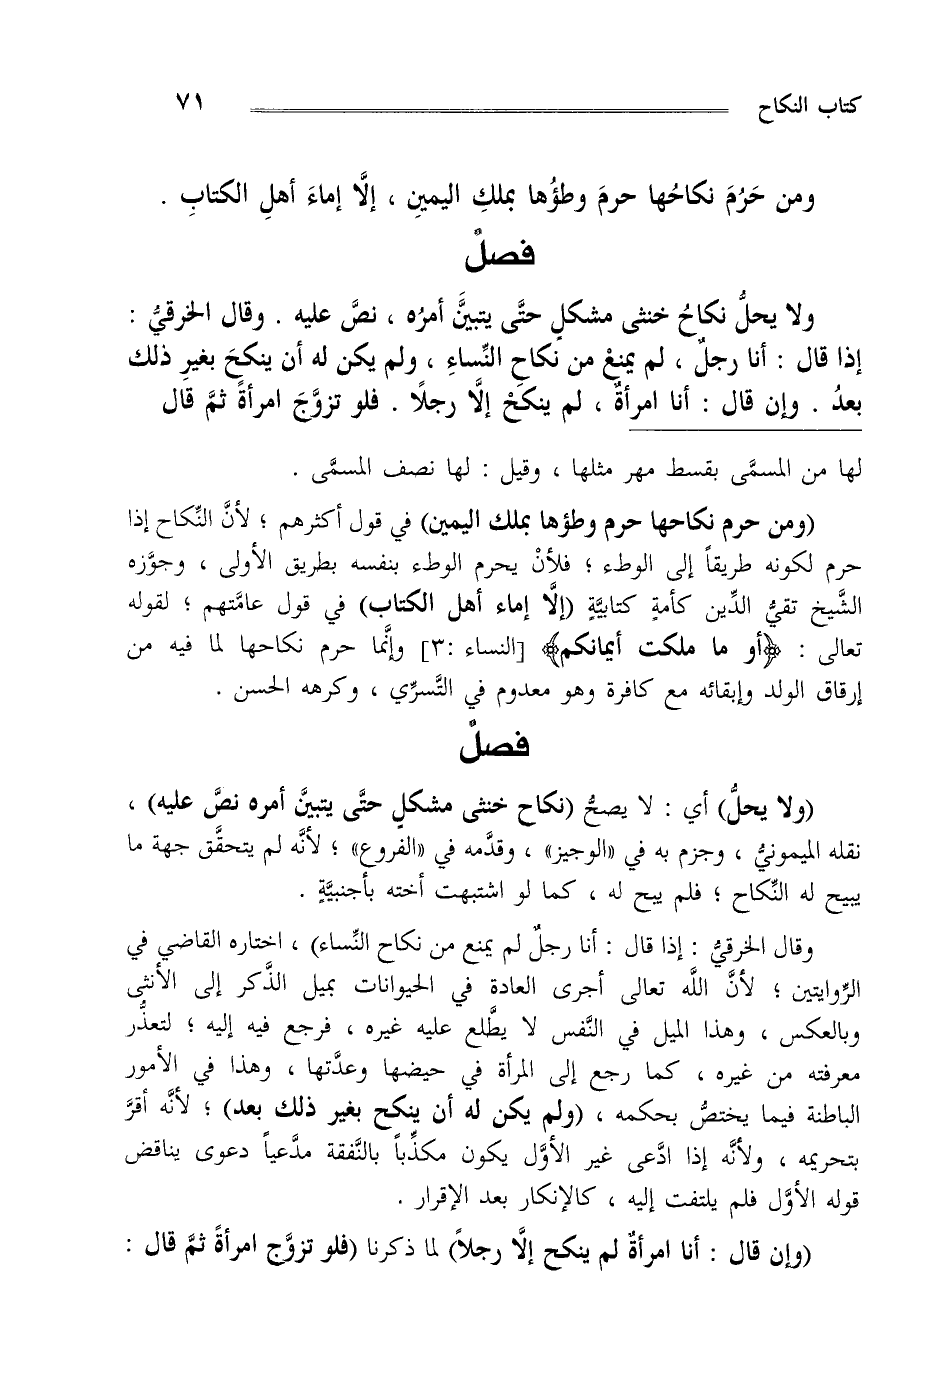 كتاب النكاح ٧١
ومن حَرُمَ نكاحُها حرمَ وطؤُها بملكِ اليمينِ ، إلَّا إماءَ أهلِ الكتابِ .
فصلٌ
ولا يحلُّ نكاحُ خنثى مشكلٍ حتَّى يتبيَّنَ أمرُه ، نصَّ عليه . وقال الخرقيُّ :
إذا قال : أنا رجلٌ ، لم يمنعْ من نكاحِ النِّساءِ ، ولم يكن له أن ينكحَ بغيرِ ذلك
بعدُ . وإن قال : أنا امرأةٌ ، لم ينكحْ إلَّا رجلًا . فلو تزوَّجَ امرأةً ثمَّ قال
لها من المسمَّى بقسط مهر مثلها ، وقيل : لها نصف المسمَّى .
(ومن حرم نكاحها حرم وطؤها بملك اليمين) في قول أكثرهم ؛ لأنَّ النِّكاح إذا
حرم لكونه طريقاً إلى الوطء ؛ فلأنْ يحرم الوطء بنفسه بطريق الأولى ، وجوَّزه
الشَّيخ تقيُّ الدِّين كأمةٍ كتابيَّةٍ (إلَّا إماء أهل الكتاب) في قول عامَّتهم ؛ لقوله
تعالى : ﴿أو ما ملكت أيمانكم﴾ [النساء :٣] وإنَّما حرم نكاحها لما فيه من
إرقاق الولد وإبقائه مع كافرة وهو معدوم في التَّسرِّي ، وكرهه الحسن .
فصلٌ
(ولا يحلُّ) أي : لا يصحُّ (نكاح خنثى مشكلٍ حتَّى يتبيَّن أمره نصَّ عليه) ،
نقله الميمونيُّ ، وجزم به في «الوجيز» ، وقدَّمه في «الفروع» ؛ لأنَّه لم يتحقَّق جهة ما
يبيح له النِّكاح ؛ فلم يبح له ، كما لو اشتبهت أخته بأجنبيَّةٍ .
وقال الخرقيُّ : إذا قال : أنا رجلٌ لم يمنع من نكاح النِّساء) ، اختاره القاضي في
الرِّوايتين ؛ لأنَّ اللَّه تعالى أجرى العادة في الحيوانات بميل الذَّكر إلى الأنثى
وبالعكس ، وهذا الميل في النَّفس لا يطَّلع عليه غيره ، فرجع فيه إليه ؛ لتعذُّر
معرفته من غيره ، كما رجع إلى المرأة في حيضها وعدَّتها ، وهذا في الأمور
الباطنة فيما يختصُّ بحكمه ، (ولم يكن له أن ينكح بغير ذلك بعد) ؛ لأنَّه أقرَّ
بتحريمه ، ولأنَّه إذا ادَّعى غير الأوَّل يكون مكذِّباً بالنَّفقة مدَّعياً دعوى يناقض
قوله الأوَّل فلم يلتفت إليه ، كالإنكار بعد الإقرار .
(وإن قال : أنا امرأةٌ لم ينكح إلَّا رجلاً) لما ذكرنا (فلو تزوَّج امرأةً ثمَّ قال :